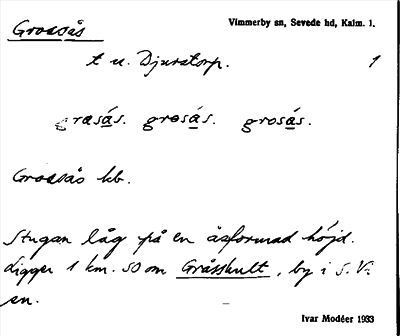 Grossås
Vimmerby sn, Sevede hd, Kalm. l.
t u. Djurstorp.
1
grosás. grosás. grosás.
Grossås kb.
Stugan låg på en åsformad höjd.
Ligger 1 km. SO om Gråsshult, by i S. Vi
sn.
Ivar Modéer 1933